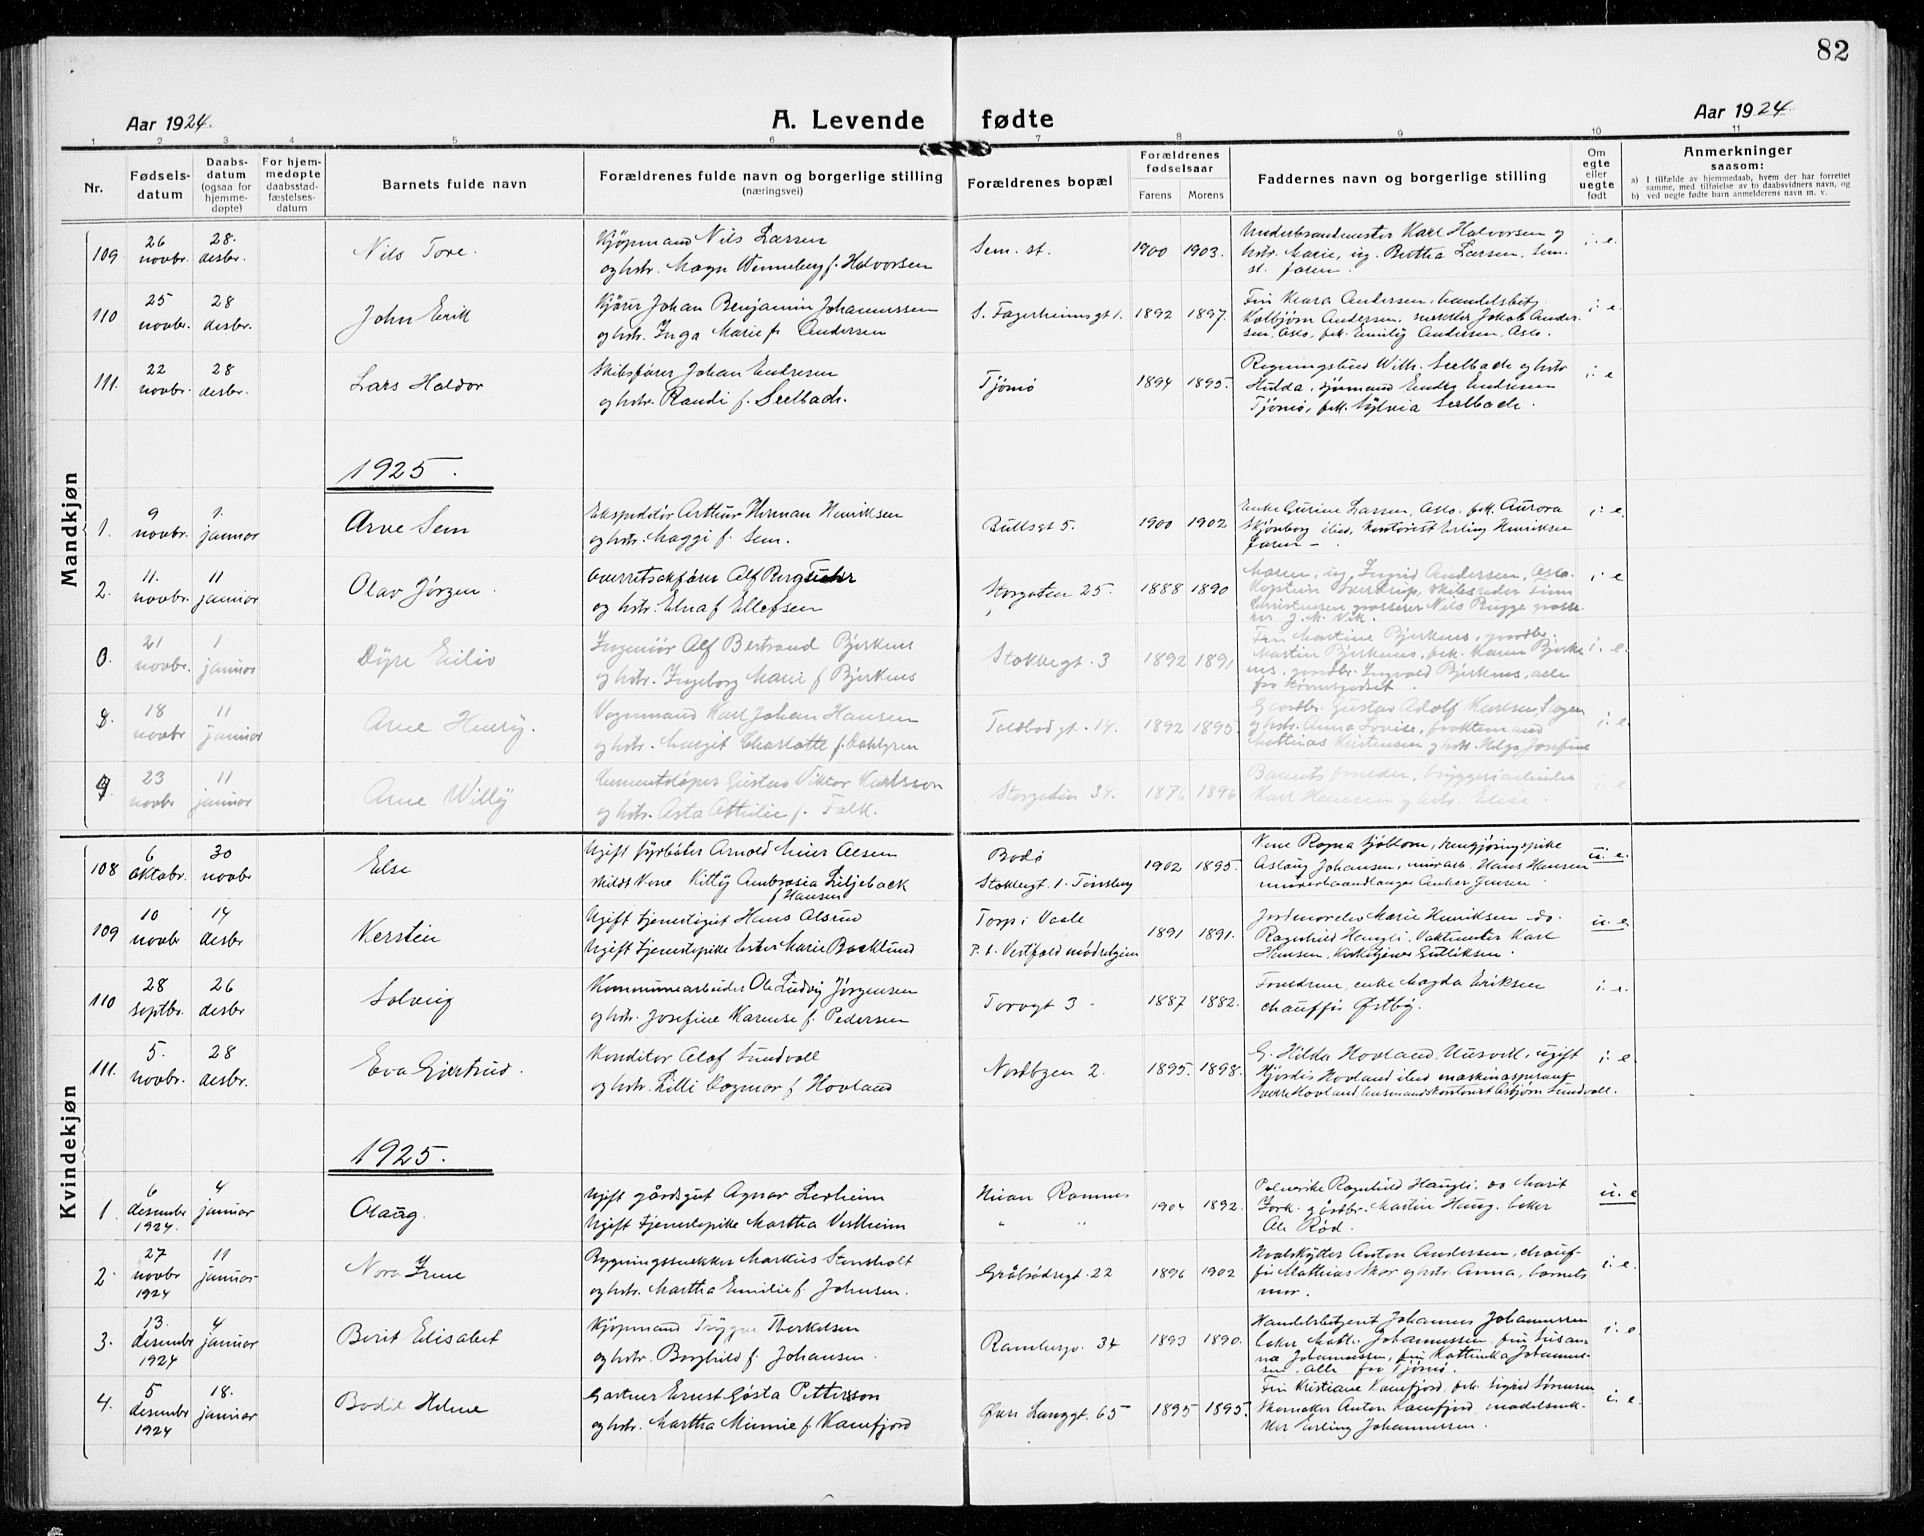 82
Aar 1924.
A. Levende fødte
Aar 1924.
1 2 3 4 5 6 7 8 9 10 11
Nr.
Fødsels-datum
Daabs-datum (ogsaa for hjemme-døpte)
For hjem-medøpte daabsstad-fæstelses-datum
Barnets fulde navn
Forældrenes fulde navn og borgerlige stilling
(næringsvei)
Forældrenes bopæl
Forældrenes fødselsaar
Farens Morens
Faddernes navn og borgerlige stilling
Om egte eller uegte født
Anmerkninger
saasom:
a) I tilfælde av hjemmedaab, hvem der har forrettet samme, med tilføielse av to daabsvidners navn, og
b) ved uegte fødte barn anmelderens navn m. v.
Mandkjøn
109 26 novbr. 28. desbr. Nils Tore.
Kjøpmand Nils Larsen
og hstr. Magn Wenneberg f. Halvorsen
Sem. st. 1900 1903.
Underbrandmester Karl Halvorsen og
hstr. Marie, ug. Bertha Larsen, Sem.
st. faren.
i. e.
110 25 novbr. 28 desbr. John Erik
Kjører Johan Benjamin Johannessen
og hstr. Inga Marie f. Andersen
S. Fagerheimsgt 1. 1892 1897.
Frk Klara Andersen, handelsbetj.
Kolbjørn Andersen, Jakob Ander-
sen, Oslo, frk. Emily Andersen, Oslo.
i. e.
111. 22 novbr. 28 desbr. Lars Haldor
Skibsfører Johan Endresen
og hstr. Randi f. Seelbach.
Tjømø 1894 1895.
Regningsbud Wilh. Seelbach og hstr
Hulda, sjømand Endre Endresen
Tjømø, frk. Sylvia Seelbach.
i. e
1925.
1. 9 novbr. 1. januar Arve Sem
Ekspeditør Arthur Herman Henriksen
og hstr. Maggi f. Sem.
Bullsgt 5. 1900 1902
Enke Gurine Larsen, Oslo. frk. Aurora
ibid, kontorist Erling Henriksen
faren –
i. e.
2. 11. novbr. 11 januar Olav Jørgen.
Overretsakfører Alf Berg
og hstr. Elna f. Ellefsen
Storgaten 25. 1888 1890
Moren, ug. Ingrid Andersen, Oslo.
Kaptein skibsreder Finn
Christensen grosserer Nils Rugge grosse-
rer J. M. Vik.
i. e
3. 21 novbr. 1 januar Dyre Eiliv
Ingeniør Alf Bertrand Bjerknes
og hstr. Ingeborg Marie f Bjerknes
Stokkegt. 3 1892 1891
Frk Martine Bjerknes, gaardbr.
Martin Bjerknes, frk. Karen Bjerk-
nes, gaardbr. Ingvald Bjerknes, alle
fra
i. e.
18 novbr 11 januar Arne Henry.
Vognmand Karl Johan Hansen
og hstr. Margit Charlotte f. Dahlgren
Toldbodgt. 14. 1892 1895.
Gaardbr. Gustav Adolf Karlsen,
og hstr. Anna Lovise,
Mathias Kristensen og hstr. Helga Josefine
i. e
23 novbr 11 januar Arne Willy
Cementstøper Gustav Viktor Karlsson
og hstr. Asta Ottilie f. Falk.
Storgaten 34. 1876 1896
Barnets bryggeriarbeider
Karl Hansen og hstr. Elise.
i e
Kvindekjøn
108 6 oktobr. 30 novbr Else
Ugift fyrbøter Arnold Meier Olsen
skilds kone Kitty Ambrosia Liljeback
f Hansen
Bodø
Stokkegt. 1. Tønsberg
1902 1895.
Kone Ragna Sjøblom, rengjøringspike
Aslaug Johansen, murarb. Hans Hansen
murerhaandlanger Anker Jensen.
u. e.
109 10 novbr 14 desbr Kersten
Ugift tjenestegut Hans Alsrud
Ugift tjenestepike Ester Marie Backlund
Torp i Vaale
P. t. Vestfold mødrehjem
1891 1891.
Jordmorelev Marie Henriksen. do.
Ragnhild Haugli. Vaktmester Karl
Hansen, Kirketjener Gulliksen.
u. e.
110 28 septbr. 26 desbr Solveig
Kommunearbeider Ole Ludvig Jørgensen
og hstr. Josefine Karense f. Pedersen
Torvgt 3 1887 1882.
Foreldrene, enke Magda Eriksen
chauffør Østby.
i. e.
111. 5. novbr. 28 desbr. Eva Gjertrud.
Konditor Olaf Sundvall
og hstr. Lilli Dagmar f Hovland
Nordbyen 2. 1895. 1898.
G. Hilda Hovland, Husvik, ugift
Hjørdis Hovland ibid maskinaspirant
Sverre Hovland, lensmandskontorist Asbjørn Sundvall.
i. e
1925.
1. 6 desembr 1924. 4 januar Olaug.
Ugift gårdsgut Agnar Lerheim
Ugift tjenestepike Martha Vestheim
Ramnes
" "
1904 1892.
Ragnhild Haugli. do Marit
gårdbr. Martin Haug. baker
Ole Rød.
u. e
2. 27 novbr 1924 11 januar Nora Irene
Bygningssnekker Markus Stensholt
og hstr. Martha Emilie f. Johnsen.
Gråbrødregt. 22 1896 1902
Hvalskytter Anton Andersen, chauf-
før Mathias Skor og hstr. Anna, barnets
mor.
i. e.
3. 13. desembr 1924 4 januar Berit Elisabet
Kjøpmand Trygve Therkelsen
og hstr. Borghild f. Johansen.
Rambergv. 34 1893 1890.
Handelsbetjent Johannes Johannessen
baker Math. Johannessen, frk Susan-
na Johannessen, frk Kathinka Johannes-
sen, alle fra Tjømø.
i. e
4. 5 desembr 1924 18. januar Bodil Helene
Gartner Ernst Gøsta Pettersson
og hstr. Martha Minnie f. Kamfjord
Øvre Langgt. 65 1895 1895.
Frk Kristiane Kamfjord, frk. Sigrid Sørensen
Skomaker Anton Kamfjord, modelsnek-
ker Erling Johannessen.
i. e.